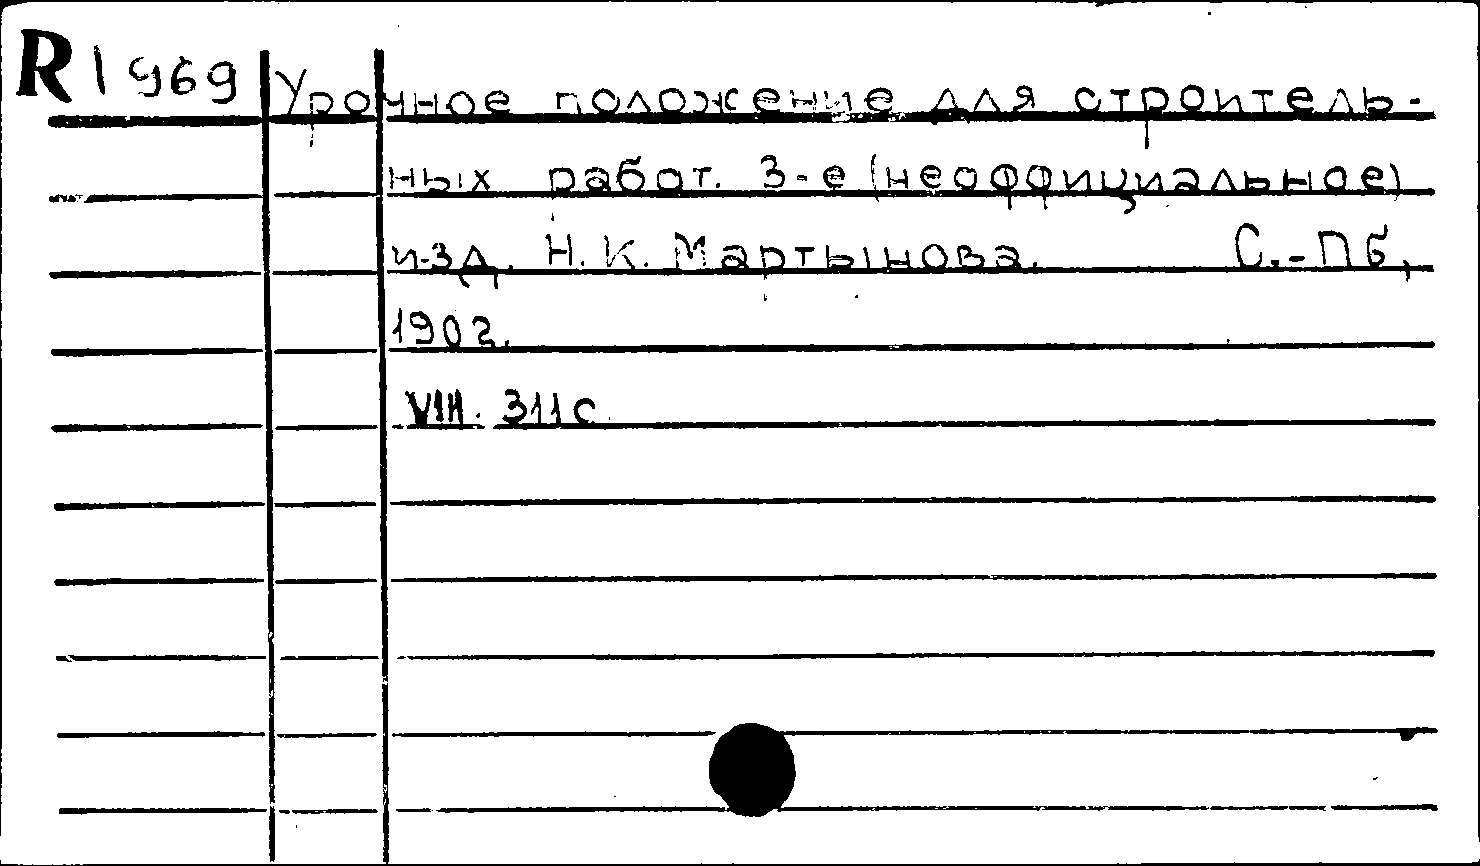 R 1969 Урочное положение для строитель-
ных работ. 3-е (неоффициальное)
изд. Н. К. Мартынова. С.-Пб,
1902.
VIII. 311 с.